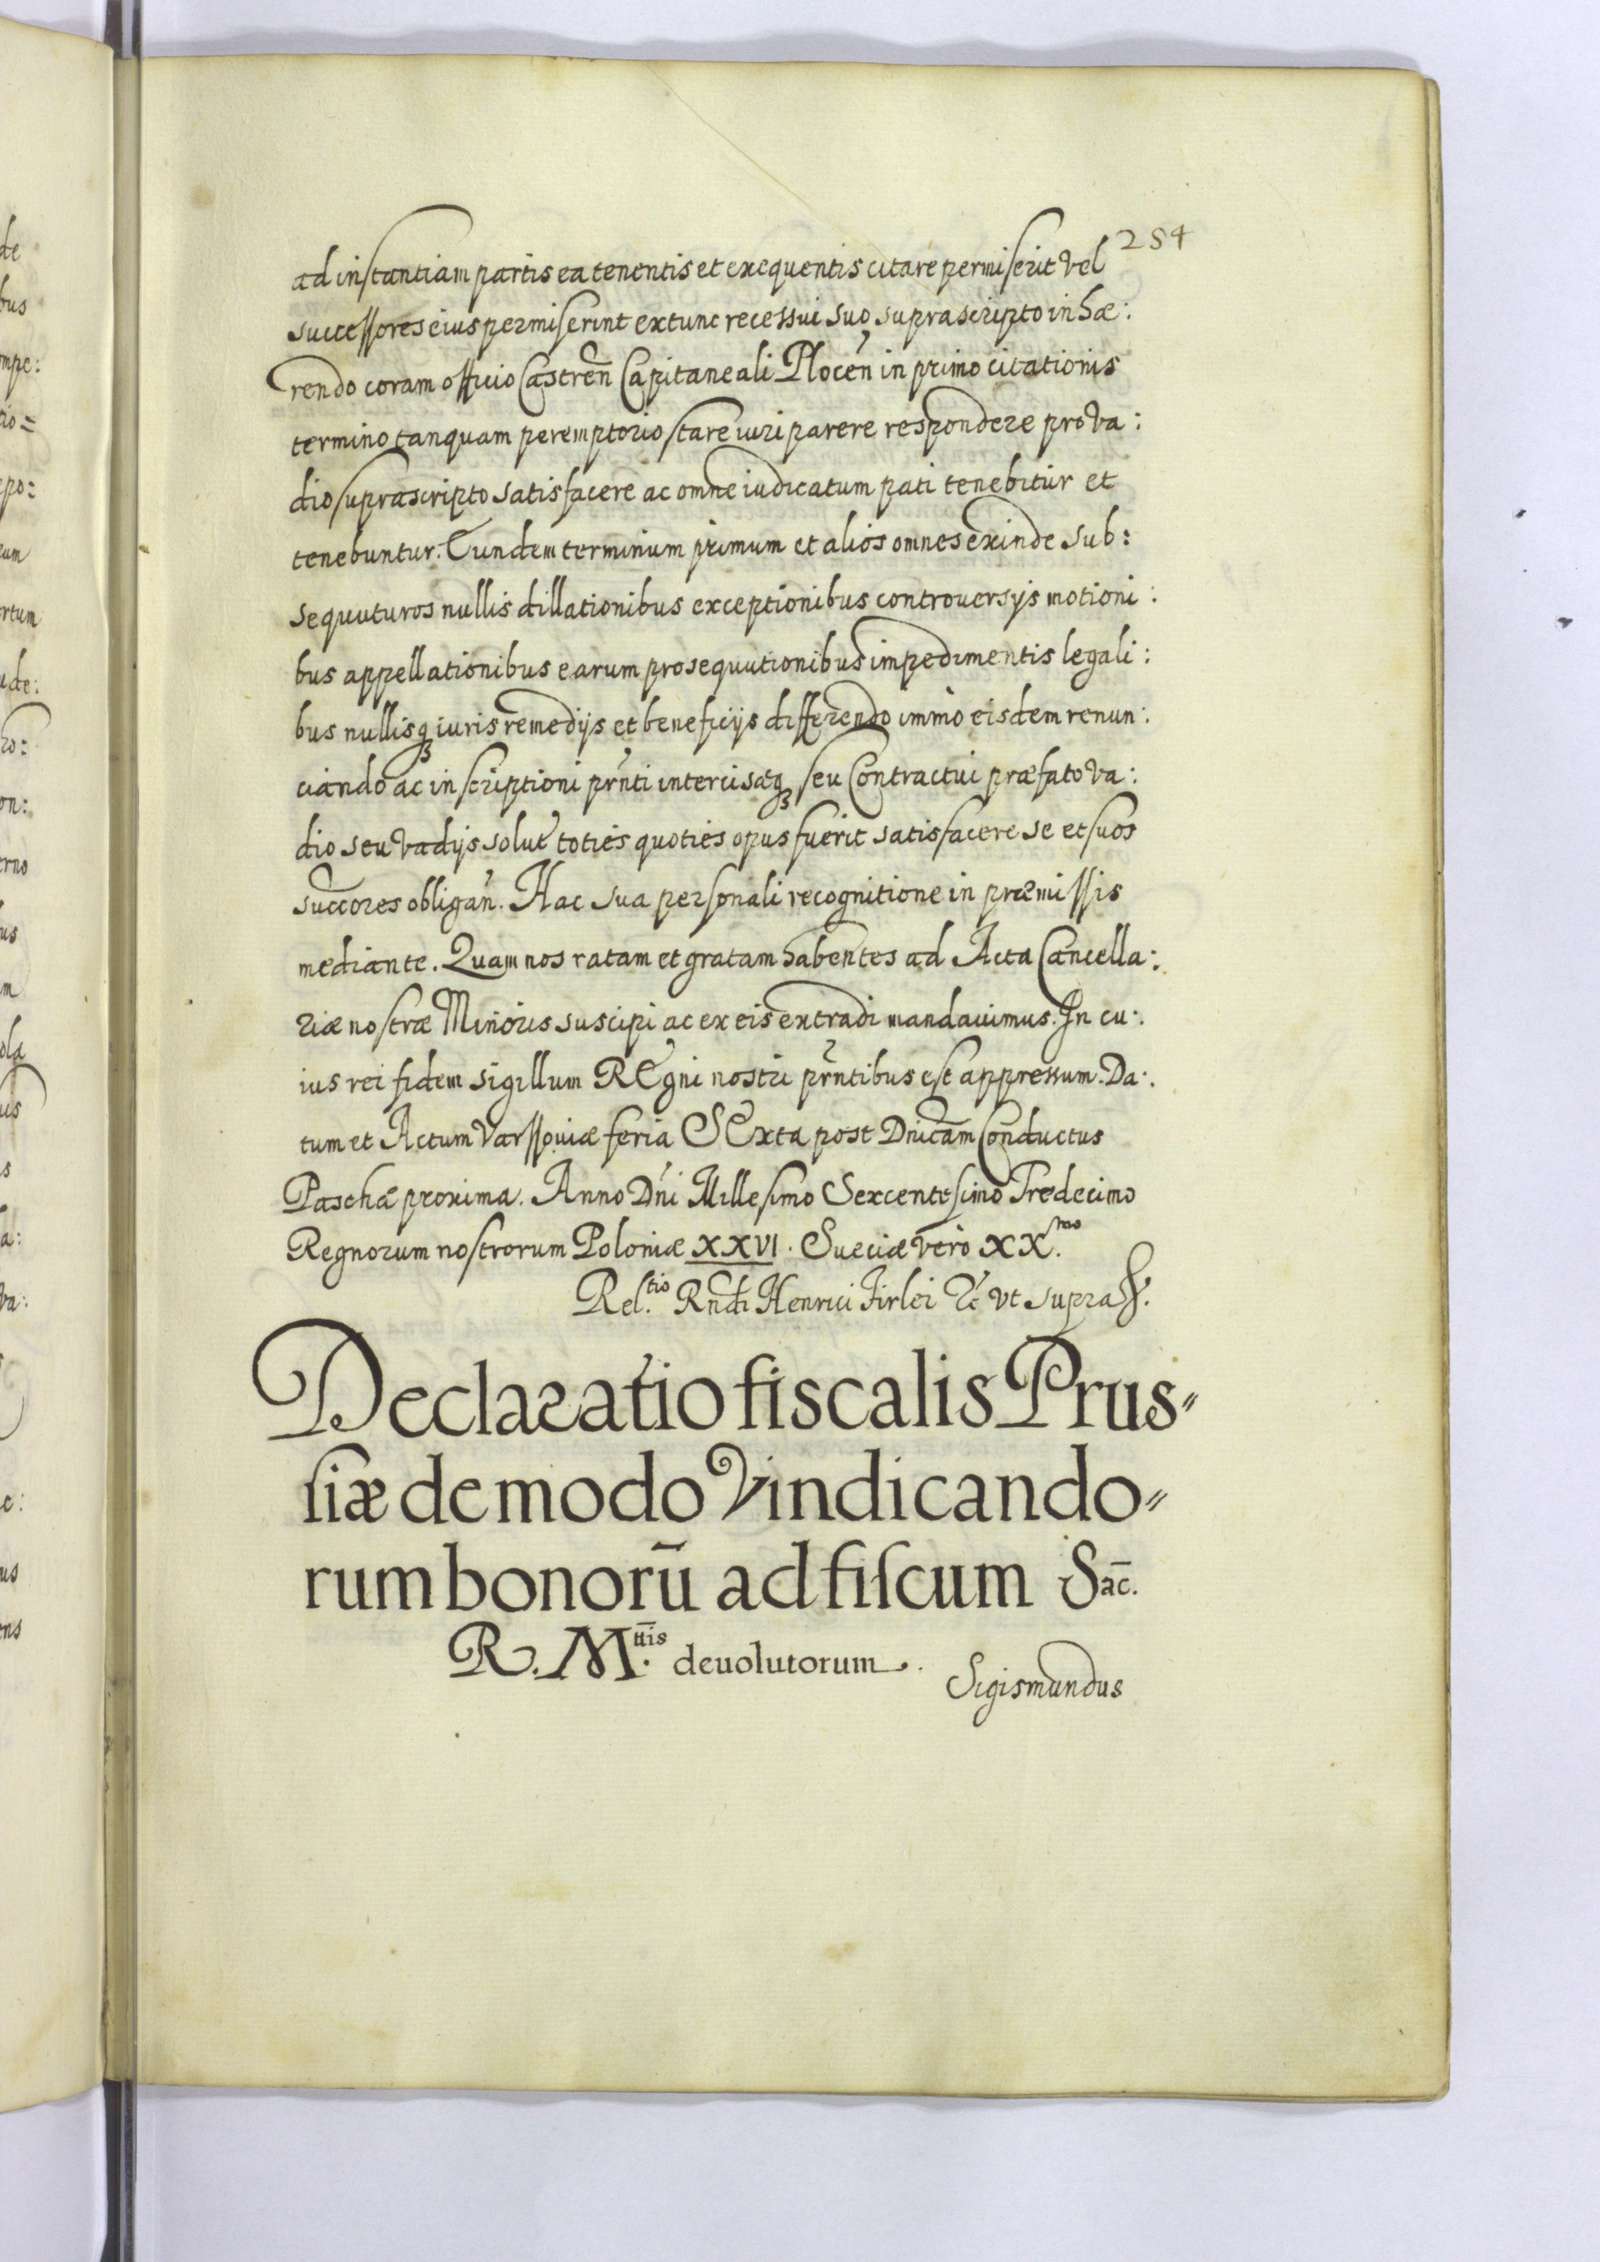 254
ad instantiam partis ea tenentis et exequentis citare permiserit vel
successores eius permiserint extunc recessui suo suprascripto inhæ:
rendo coram officio Castren̄ Capitaneali Plocen̄ in primo citationis
termino tanquam peremptorio stare iuri parere respondere pro va:
dio suprascripto satisfacere ac omne iudicatum pati tenebitur et
tenebuntur. Eundem terminum primum et alios omnes exinde sub:
sequuturos nullis dillationibus exceptionibus controuersijs motioni:
bus appellationibus earum prosequutionibus impedimentis legali:
bus nullisq₃ iuris remedijs et beneficijs differendo immo eisdem renun:
ciando ac inscriptioni pr̄nti intercisæq₃ seu Contractui præfato va:
dio seu vadijs solut̄ toties quoties opus fuerit satisfacere se et suos
succ̄ores obligan̄. Hac sua personali recognitione in præmissis
mediante. Quam nos ratam et gratam habentes ad Acta Cancella:
riæ nostræ Minoris suscipi ac ex eis extradi mandauimus. In cu:
ius rei fidem sigillum REgni nostri pr̄ntibus est appressum. Da:
tum et Actum Varssouiæ feria SExta post Dnicam̄ Conductus
Paschæ proxima. Anno Dn̄i Millesimo Sexcentesimo Tredecimo
Regnorum nostrorum Poloniæ XXVI. Sueciæ vero XX.mo
Rel.tio Rn̄di Henrici Firlei &c vt supra
Declaratio fiscalis Prus=
siæ de modo Vindicando=
rum bonorū ad fiscum Sac̄.
R. M.ttis deuolutorum.
Sigismundus